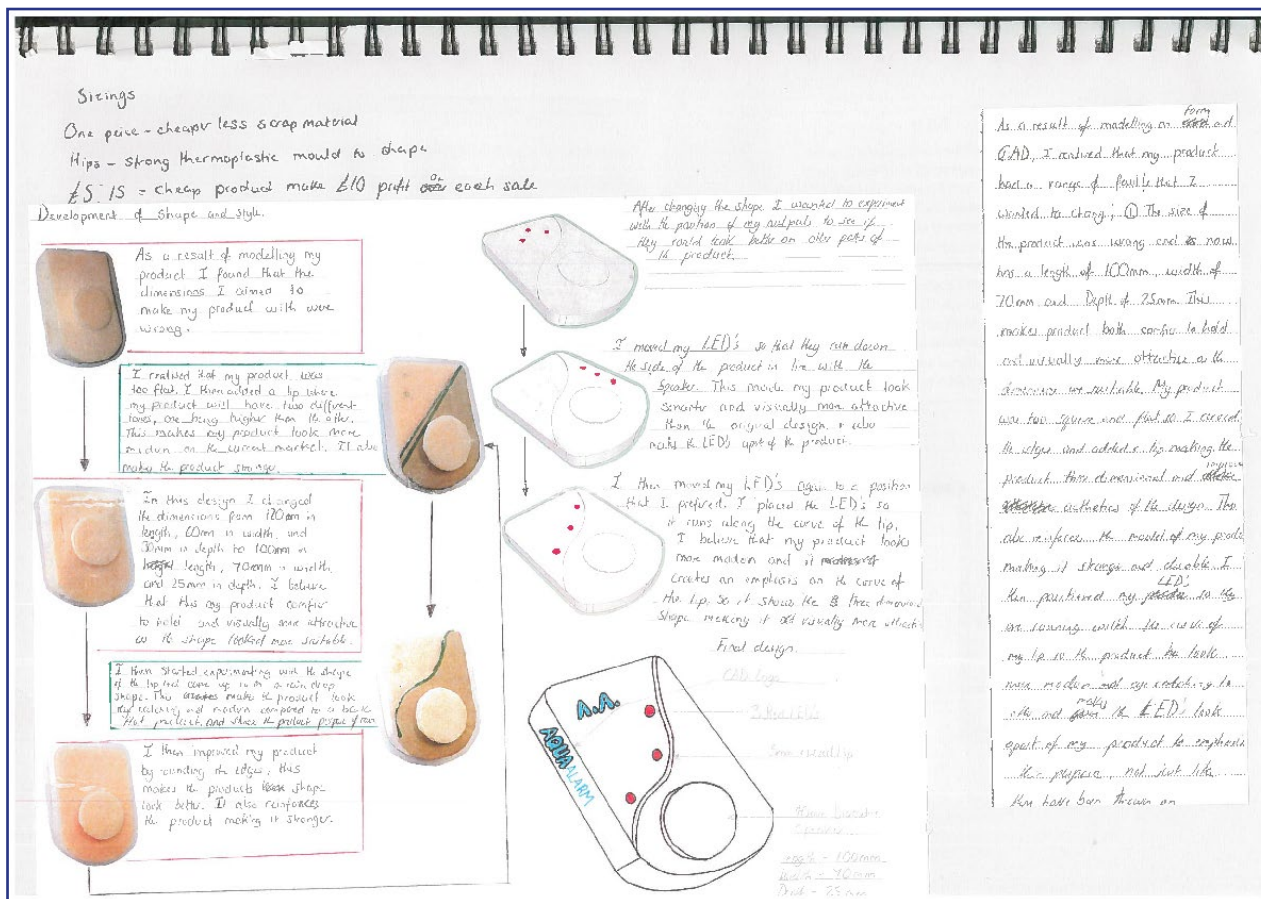 Sizings
One peice - cheaper less scrap material
Hips - strong thermoplastic mould to shape
£5.15 = cheap product make £10 profit on each sale
Development of shape and style.
As a result of modelling my
product I found that the
dimensions I aimed to
make my product with were
wrong.
I realised that my product was
too flat. I then added a lip where
my product will have two different
tones, one being higher than the other.
This makes my product look more
modern on the current market. It also
makes the product stronger.
In this design I changed
the dimensions from 120mm in
length, 60mm in width, and
30mm in depth to 100mm in
length, 70mm in width
and 25mm in depth. I believe
that this my product comfier
to hold and visually more attractive
as the shape looked more suitable.
I then started experimenting with the shape
of the lip and came up with a rain drop
shape. This makes make the product look
eye catching and modern compared to a basic
flat product, and shows the products purpose of rain
I then improved my product
by rounding the edges, this
makes the products shape
look better. It also reinforces
the product making it stronger.
After changing the shape I wanted to experiment
with the position of my outputs to see if
they could look better on other parts of
the product.
I moved my LED's so that they run down
the side of the product in line with the
speaker. This made my product look
smarter and visually more attractive
than the original design. + also
makes the LED's apart of the product.
I then moved my LED's again to a position
that I prefered. I placed the LED's so
it runs along the curve of the lip.
I believe that my product looks
more modern and it
creates an emphasis on the curve of
the lip, so it shows the three dimension
shape making it visually more attracti
Final design.
CAD logo
3 Red LED's
5mm
A.A.
AQUA ALARM
Speaker
length - 100mm
Width - 70mm
Depth - 25mm
As a result of modelling on form and
CAD, I realised that my product
had a range of faults that I
wanted to change; ① The size of
the product was wrong and is now
has a length of 100mm, width of
70mm and Depth of 25mm. This
makes product both comfier to hold
and visually more attractive as the
dimensions are suitable. My product
was too square and flat so I curved
the edges and added a lip making the
product three dimensional and improve
asthetics of the design. This
also reinforces the model of my produ
making it stronger and durable. I
then positioned my LED's so the
are running with the curve of
my lip so the product be look
more modern and eye catching to
and makes the LED's look
apart of my product to emphasis
the purpose, not just like
they have been thrown on